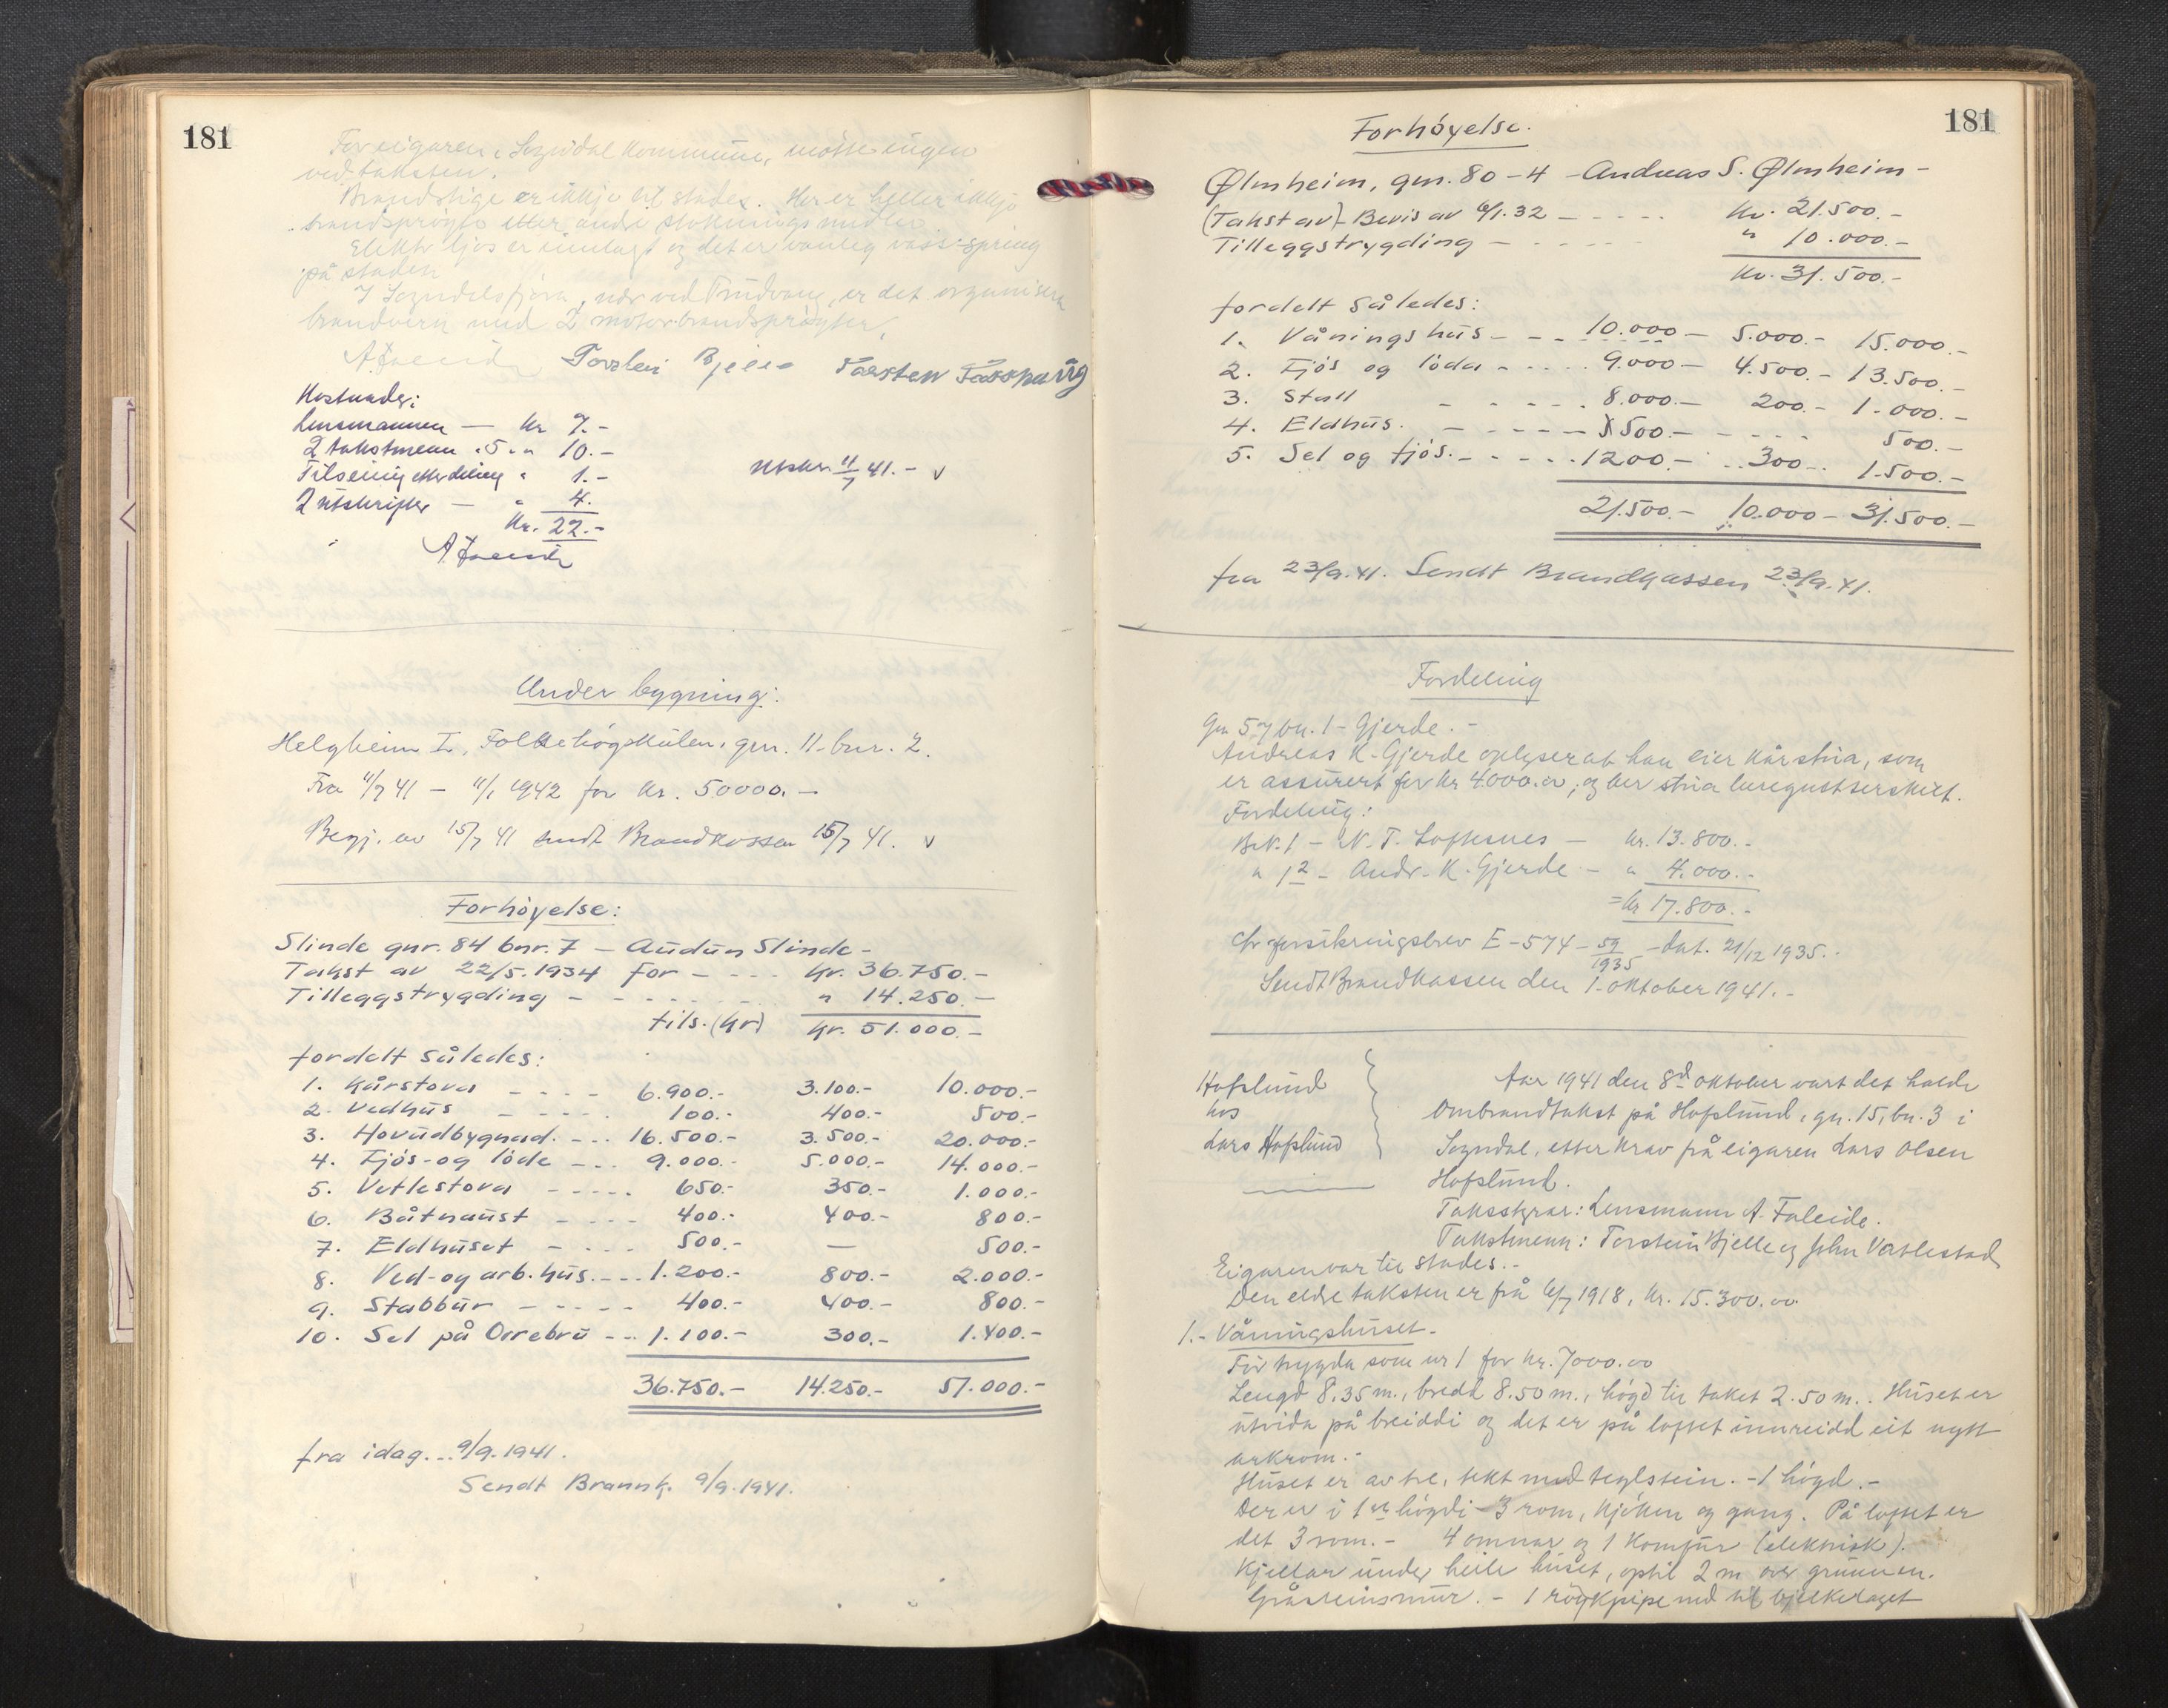 181
For eigaren, Sogndal kommune, møtte ingen
ved taksten.
Brandstige er ikkje til stades. Her er heller ikkje
brandsprøyte eller andre sløkningsmidler.
Elektr. ljos er innlagt og det er vanleg vassspring
på staden.
I Sogndalsfjøra, nær ved Trudvang, er det organisera
brandvern med 2 motorbrandsprøyter.
A. Faleide Torstein Bjelle
Kostnader:
Lensmannen — kr 7.-
2 takstmenn à 5 " " 10.-
Tilseiing " 1.-
2 utskrifter — " 4.
Kr. 22.-
Utskr. 11/7 41.- v
A. Faleide
Under bygning:
Helgheim I, Folkehøgskulen, gnr. 11 - bnr. 2.
Fra 11/7 41 — 11/1 1942 for kr. 50000.—
Begj. av 15/7 41 sendt Brandkassen 15/7 41. v
Forhøyelse:
Slinde gnr. 84 bnr. 7 — Audun Slinde -
Takst av 22/5. 1934 for - - - - kr. 36.750.-
Tilleggstrygding - - - - - - - " 14.250.-
tils. (kr) kr. 51.000.-
fordelt således:
1. Kårstova - - - - 6.900.- 3.100.- 10.000.-
2. Vedhus - - - - 100.- 400.- 500.-
3. Hovudbygnad. - - - 16.500.- 3.500.- 20.000.-
4. Fjós- og löde - - - 9.000.- 5.000.- 14.000.-
5. Vetlestova - - - - - 650.- 350.- 1.000.-
6. Båtnaust - - - - 400.- 400.- 800.-
7. Eldhuset - - - - 500.- — 500.-
8. Ved- og arb. hus. - - - 1.200.- 800.- 2.000.-
9. Stabbur - - - - - 400.- 400.- 800.-
10. Sel på Orrebru - - - 1.100.- 300.- 1.400.-
36.750.- 14.250.- 51.000.-
fra idag... 9/9. 1941.
Sendt Brannk. 9/9. 1941.
181
Forhöyelse.
Ølmheim, gnr. 80 - 4 - Andreas S. Ølmheim -
(Takst av) - Bevis av 6/1. 32 - - - - - kr. 21.500.-
Tilleggstrygding - - - - - - " 10.000.-
Kr. 31.500.-
fordelt således:
1. Våningshus - - - 10.000 - 5.000.- 15.000.-
2. Fjós og löda - - - - - 9.000 - 4.500.- 13.500.-
3. Stall - - - - - 8.000.- 200.- 1.000.-
4. Eldhus. - - - - - - 500.- - - - - 500.-
5. Sel og fjós. - - - - - 1200.- .. 300.. 1.500.-
21.500.- 10.000 - 31.500.-
fra 23/9. 41. Sendt Brandqassen 23/9. 41.
Fordeling
Gn 57 bn. 1 - Gjerde. -
Andreas K. Gjerde oplyser at han eier kårstua, som
er assurert for kr 4000.00, og ber stua
Fordeling:
Br.N. 1 - N. T. Loftesnes — kr. 13.800.-
" 1 2 - Andr. K. Gjerde - " 4.000.-
= kr 17.800.-
forsikringsbrev E - 574 - 59/1935 - dat. 21/12 1935..
Sendt Brandkassen den 1. oktober 1941. -
Hofslund
hos
Lars Hofslund
Aar 1941 den 8d oktober vart det halde
ombrandtakst på Hofslund, gn. 15, bn. 3 i
Sogndal, etter krav frå eigaren Lars Olsen
Hofslund.
Taksstyrar: Lensmann A. Faleide.
Takstmenn: Torstein Bjelle og John Vatlestad
Eigaren var til stades. -
Den eldre taksten er frå 6/7 1918, kr. 15.300.00
1. - Våningshuset -
Før trygda som nr 1 for kr. 7000.00
Lengd 8.35 m., bredd 8.50 m., høgd til taket 2.50 m.. Huset er
utvida på breiddi og det er på loftet innreidd eit nytt
arkrom. -
Huset er av tre, tekt med teglstein. - 1 høgd. -
Der er i 1ste høgdi - 3 rom, kjøken og gang. På loftet er
det 3 rom. - 4 omnar og 1 komfur (elektrisk).
Kjellar under heile huset, optil 2 m over grunnen.
Gråsteinsmur. - 1 røykpipe ned til bjelkelaget